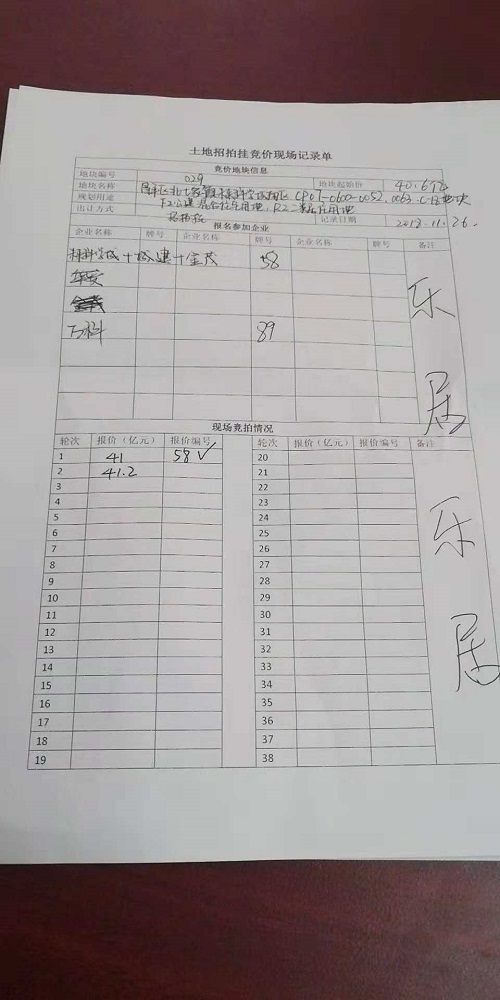 土地招拍挂竞价现场记录单
竞价地块信息
地块编号 029 地块起始价 40.6亿
地块名称 昌平区北七家镇未来科学城南区CP07-0600-0052、0063、C-11地块
规划用途 F2公建混合住宅用地、R2二类居住用地
出让方式 招拍挂 记录日期 2018.11.26.
报名参加企业
企业名称 牌号 企业名称 牌号 企业名称 牌号 备注
科学城+城建+金茂 58
华安
金茂
万科 89
乐
居
现场竞拍情况
轮次 报价（亿元） 报价编号 轮次 报价（亿元） 报价编号 备注
1 41 58√ 20
2 41.2 21
3 22
4 23
5 24
6 25
7 26
8 27
9 28
10 29
11 30
12 31
13 32
14 33
15 34
16 35
17 36
18 37
19 38
乐
居